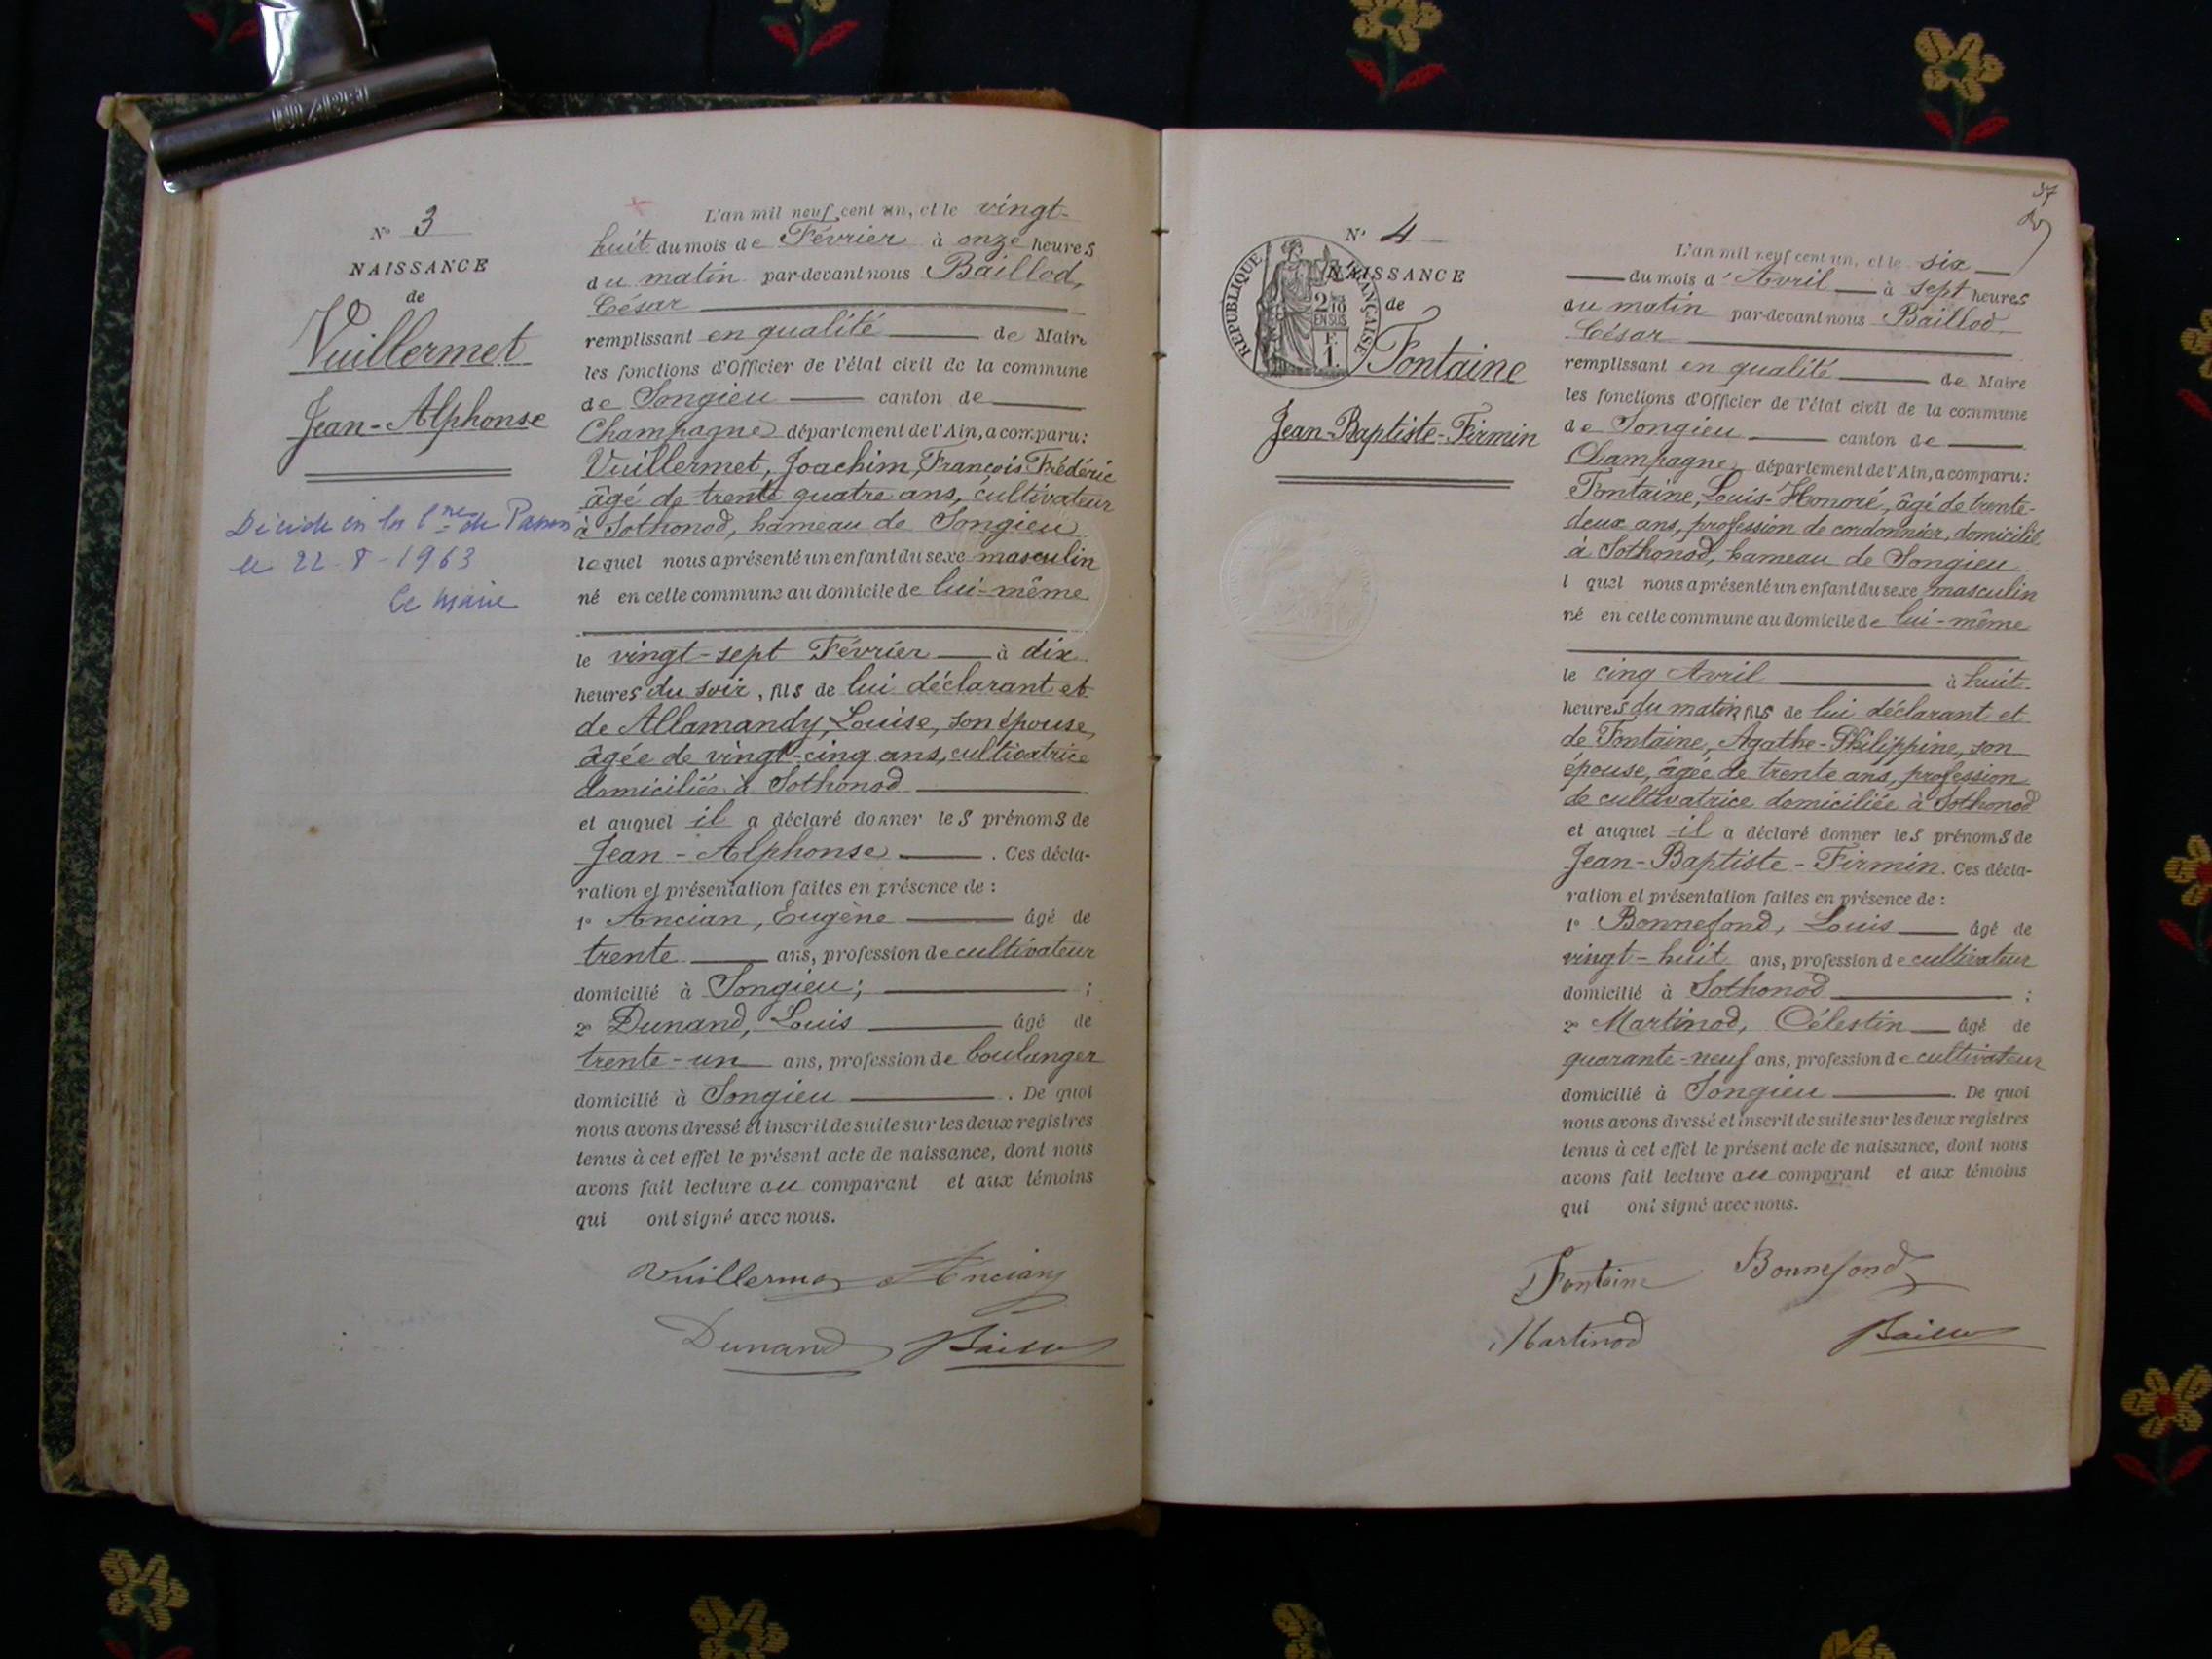 N° 3
NAISSANCE
de
Vuillermet
Jean-Alphonse
le 22-8-1963
Le Maire
L'an mil neuf cent un, et le vingt-
huit du mois de Février à onze heures
du matin par-devant nous Baillod,
César
remplissant en qualité de Maire
les fonctions d'Officier de l'état civil de la commune
de Songieu canton de
Champagne département de l'Ain, a comparu:
Vuillermet, Joachim, François Frédéric
âgé de trente quatre ans, cultivateur
à Sothonod, hameau de Songieu
lequel nous a présenté un enfant du sexe masculin
né en cette commune au domicile de lui-même
le vingt-sept Février à dix
heures du soir, fils de lui déclarant et
de Allamandy, Louise, son épouse,
âgée de vingt-cinq ans, cultivatrice
domiciliée à Sothonod
et auquel il a déclaré donner les prénoms de
Jean-Alphonse. Ces décla-
ration et présentation faites en présence de :
1° Ancian, Eugène âgé de
trente ans, profession de cultivateur
domicilié à Songieu; ;
2° Dunand, Louis âgé de
trente-un ans, profession de boulanger
domicilié à Songieu. De quoi
nous avons dressé et inscrit de suite sur les deux registres
tenus à cet effet le présent acte de naissance, dont nous
avons fait lecture au comparant et aux témoins
qui ont signé avec nous.
Vuillermet Ancian
Dunand Baillod
37
N° 4
NAISSANCE
de
RÉPUBLIQUE FRANÇAISE
2/10
EN SUS
F.
1.
Fontaine
Jean-Baptiste-Firmin
L'an mil neuf cent un, et le six
du mois d'Avril à sept heures
du matin par-devant nous Baillod
César
remplissant en qualité de Maire
les fonctions d'Officier de l'état civil de la commune
de Songieu canton de
Champagne département de l'Ain, a comparu:
Fontaine, Louis-Honoré, âgé de trente-
deux ans, profession de cordonnier, domicilié
à Sothonod, hameau de Songieu
l quel nous a présenté un enfant du sexe masculin
né en cette commune au domicile de lui-même
le cinq Avril à huit
heures du matin, fils de lui déclarant et
de Fontaine, Agathe-Philippine, son
épouse, âgée de trente ans, profession
de cultivatrice domiciliée à Sothonod
et auquel il a déclaré donner les prénoms de
Jean-Baptiste-Firmin. Ces décla-
ration et présentation faites en présence de :
1° Bonnefond, Louis âgé de
vingt-huit ans, profession de cultivateur
domicilié à Sothonod ;
2° Martinod, Célestin âgé de
quarante-neuf ans, profession de cultivateur
domicilié à Songieu. De quoi
nous avons dressé et inscrit de suite sur les deux registres
tenus à cet effet le présent acte de naissance, dont nous
avons fait lecture au comparant et aux témoins
qui ont signé avec nous.
Fontaine Bonnefond
Martinod Baillod